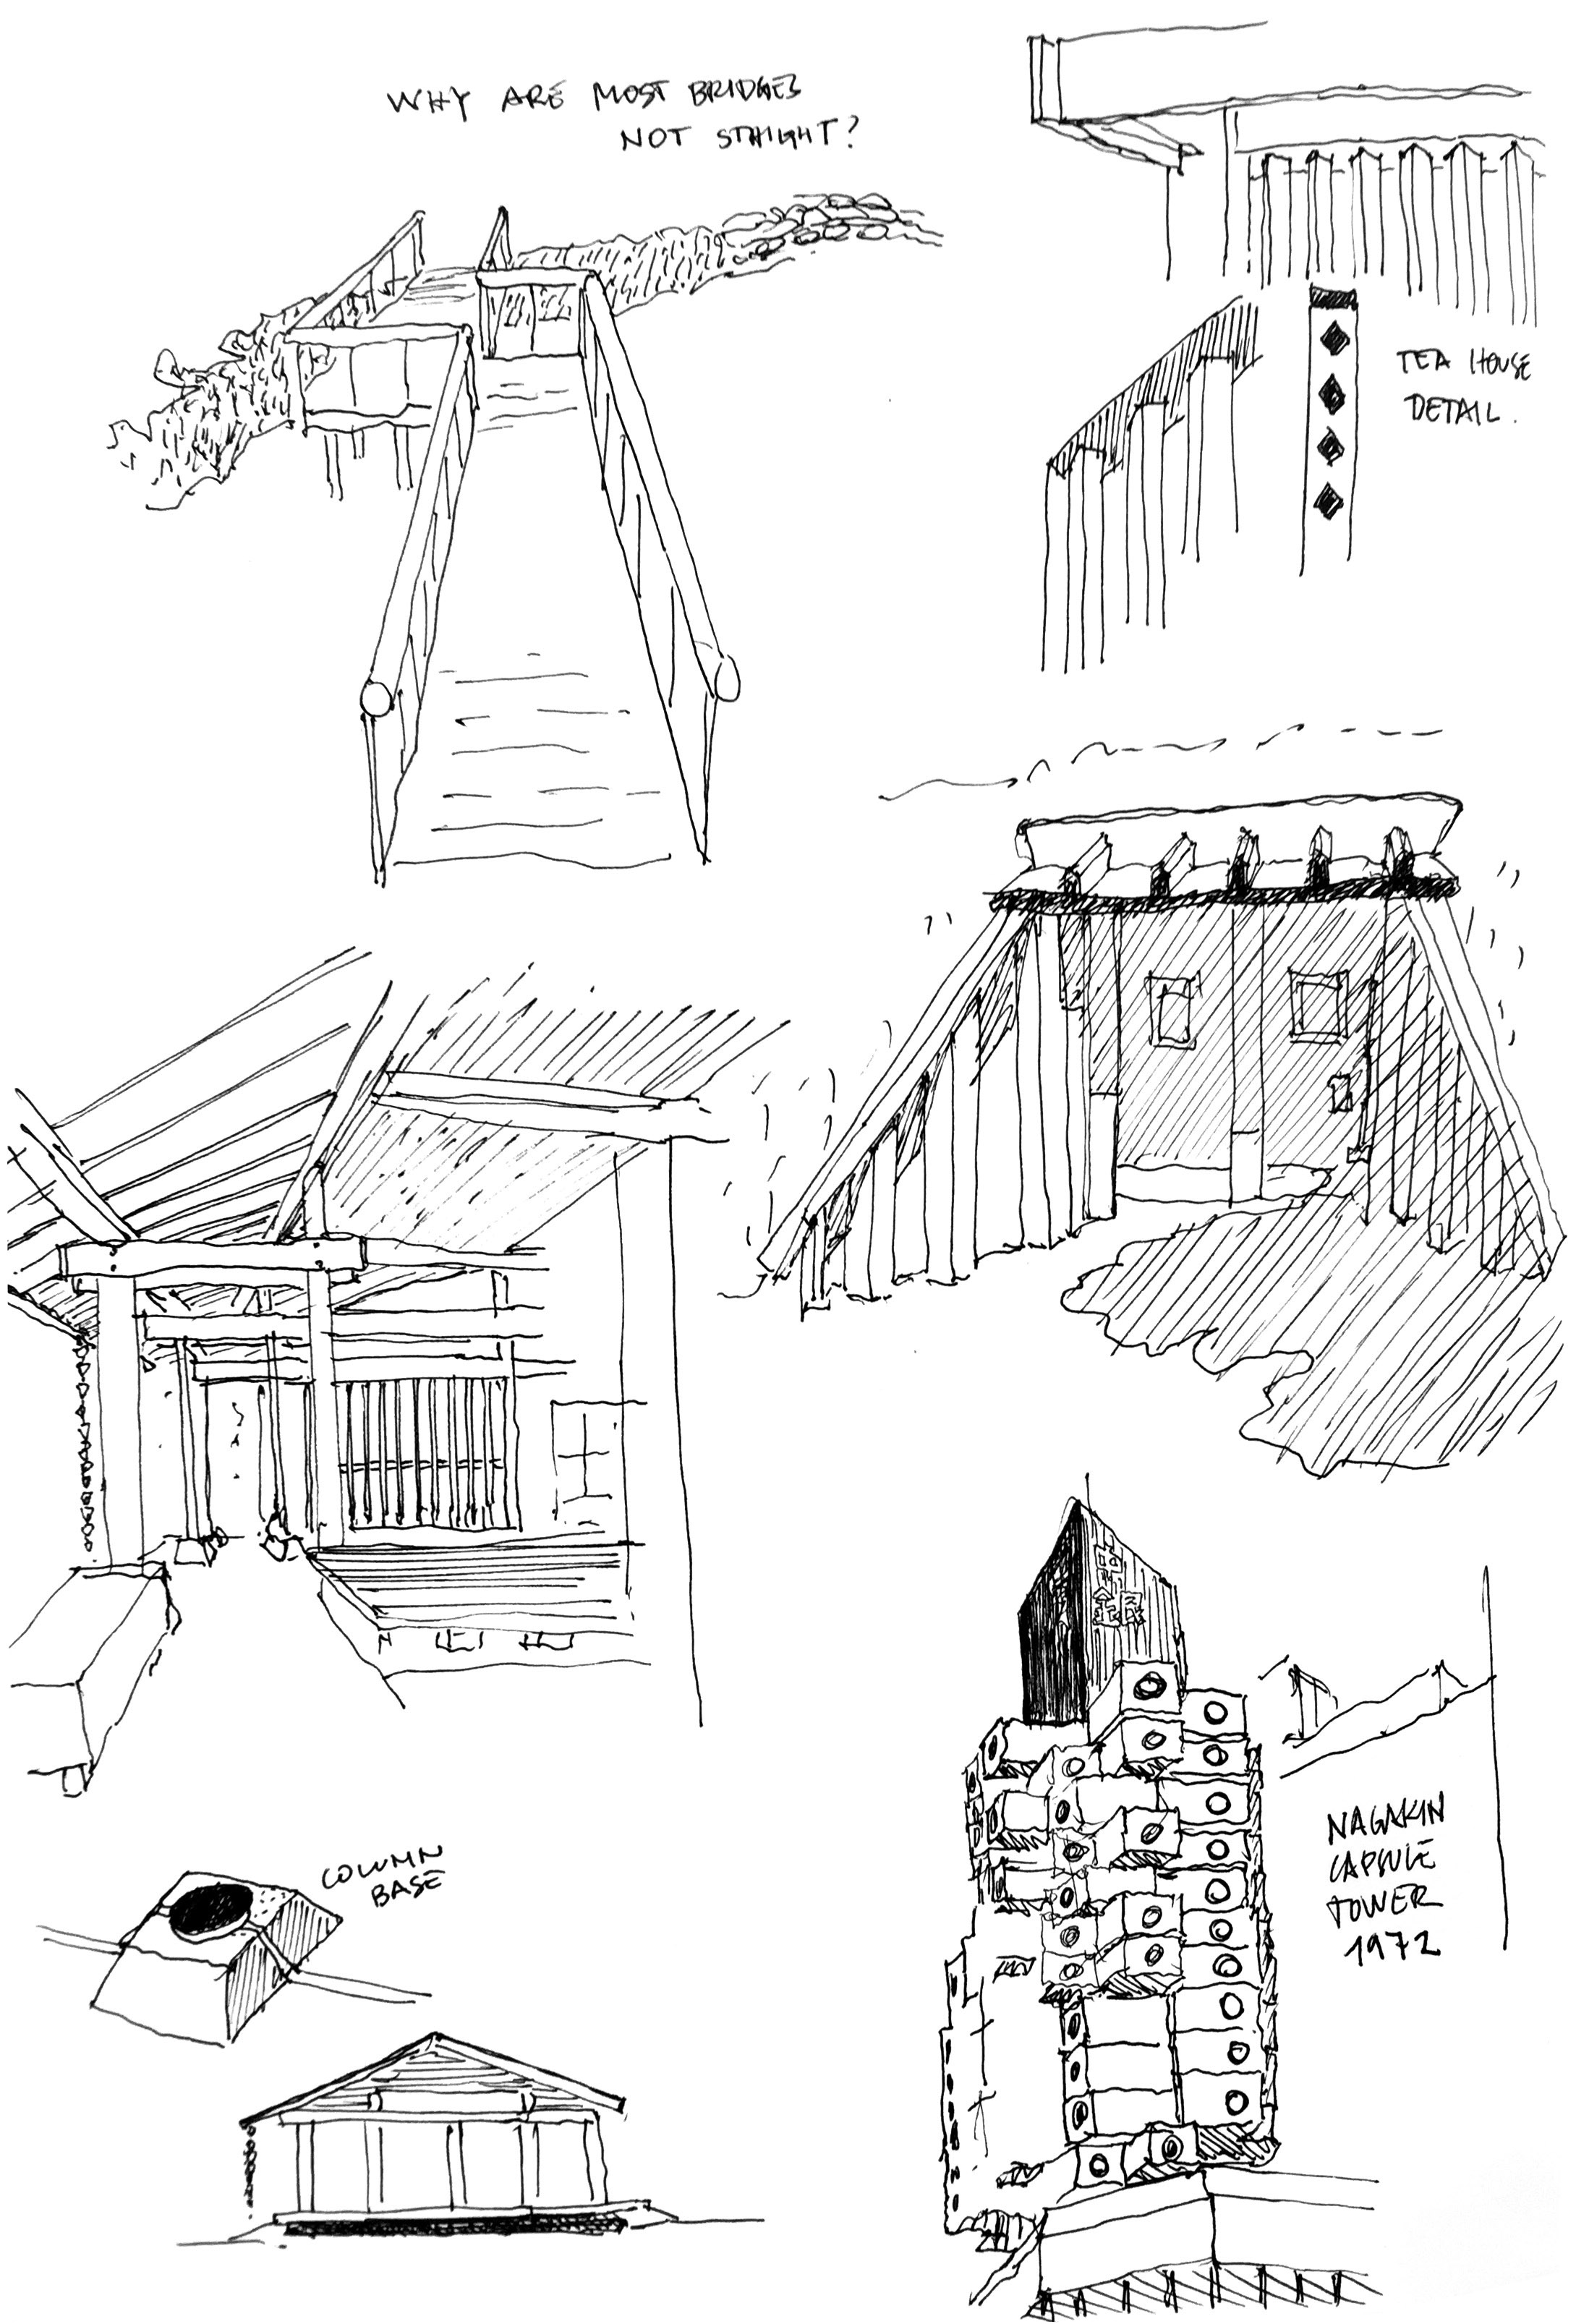 WHY ARE MOST BRIDGES
NOT STAIGHT?
TEA HOUSE
DETAIL.
COLUMN
BASE
NAGAKIN
CAPSULE
TOWER
1972